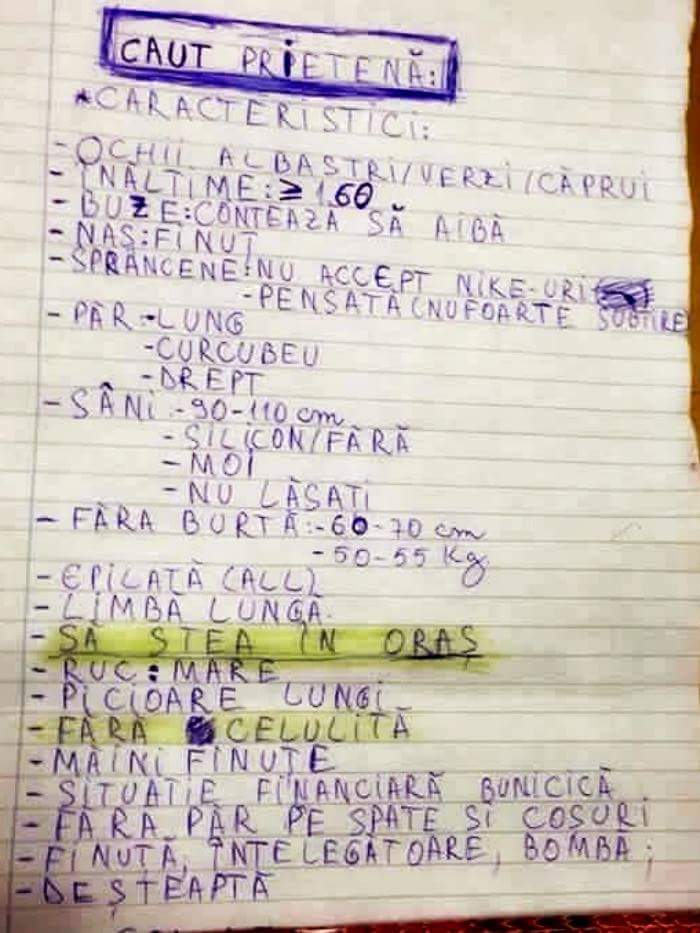 CAUT PRIETENĂ:
*CARACTERISTICI:
- OCHII ALBASTRI/VERZI/CĂPRUI
- ÎNĂLTIME: ≥ 1.60
- BUZE: CONTEAZĂ SĂ AIBĂ
- NAS: FINUT
- SPRÂNCENE: NU ACCEPT NIKE-URI
- PENSATĂ (NU FOARTE SUBTIRE)
- PĂR: - LUNG
- CURCUBEU
- DREPT
- SÂNI - 90-110 cm
- SILICON/FĂRĂ
- MOI
- NU LĂSATI
- FĂRĂ BURTĂ: - 60-70 cm
- 50-55 Kg
- EPILATĂ (ALL)
- LIMBĂ LUNGĂ
- SĂ STEA ÎN ORAȘ
- RUC: MARE
- PICIOARE LUNGI
- FĂRĂ CELULITĂ
- MÂINI FINUTE
- SITUATIE FINANCIARĂ BUNICICĂ
- FĂRĂ PĂR PE SPATE SI COSURI
- FINUTĂ, ÎNTELEGĂTOARE, BOMBĂ;
- DEȘTEAPTĂ